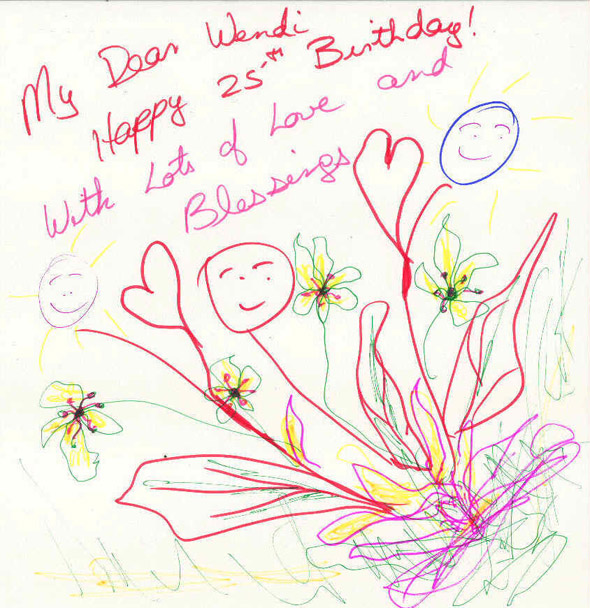 My Dear Wendi
Happy 25th Birthday!
With Lots of Love and
Blessings